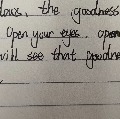 laws, the goodness
Open your eyes, open
will see that goodne